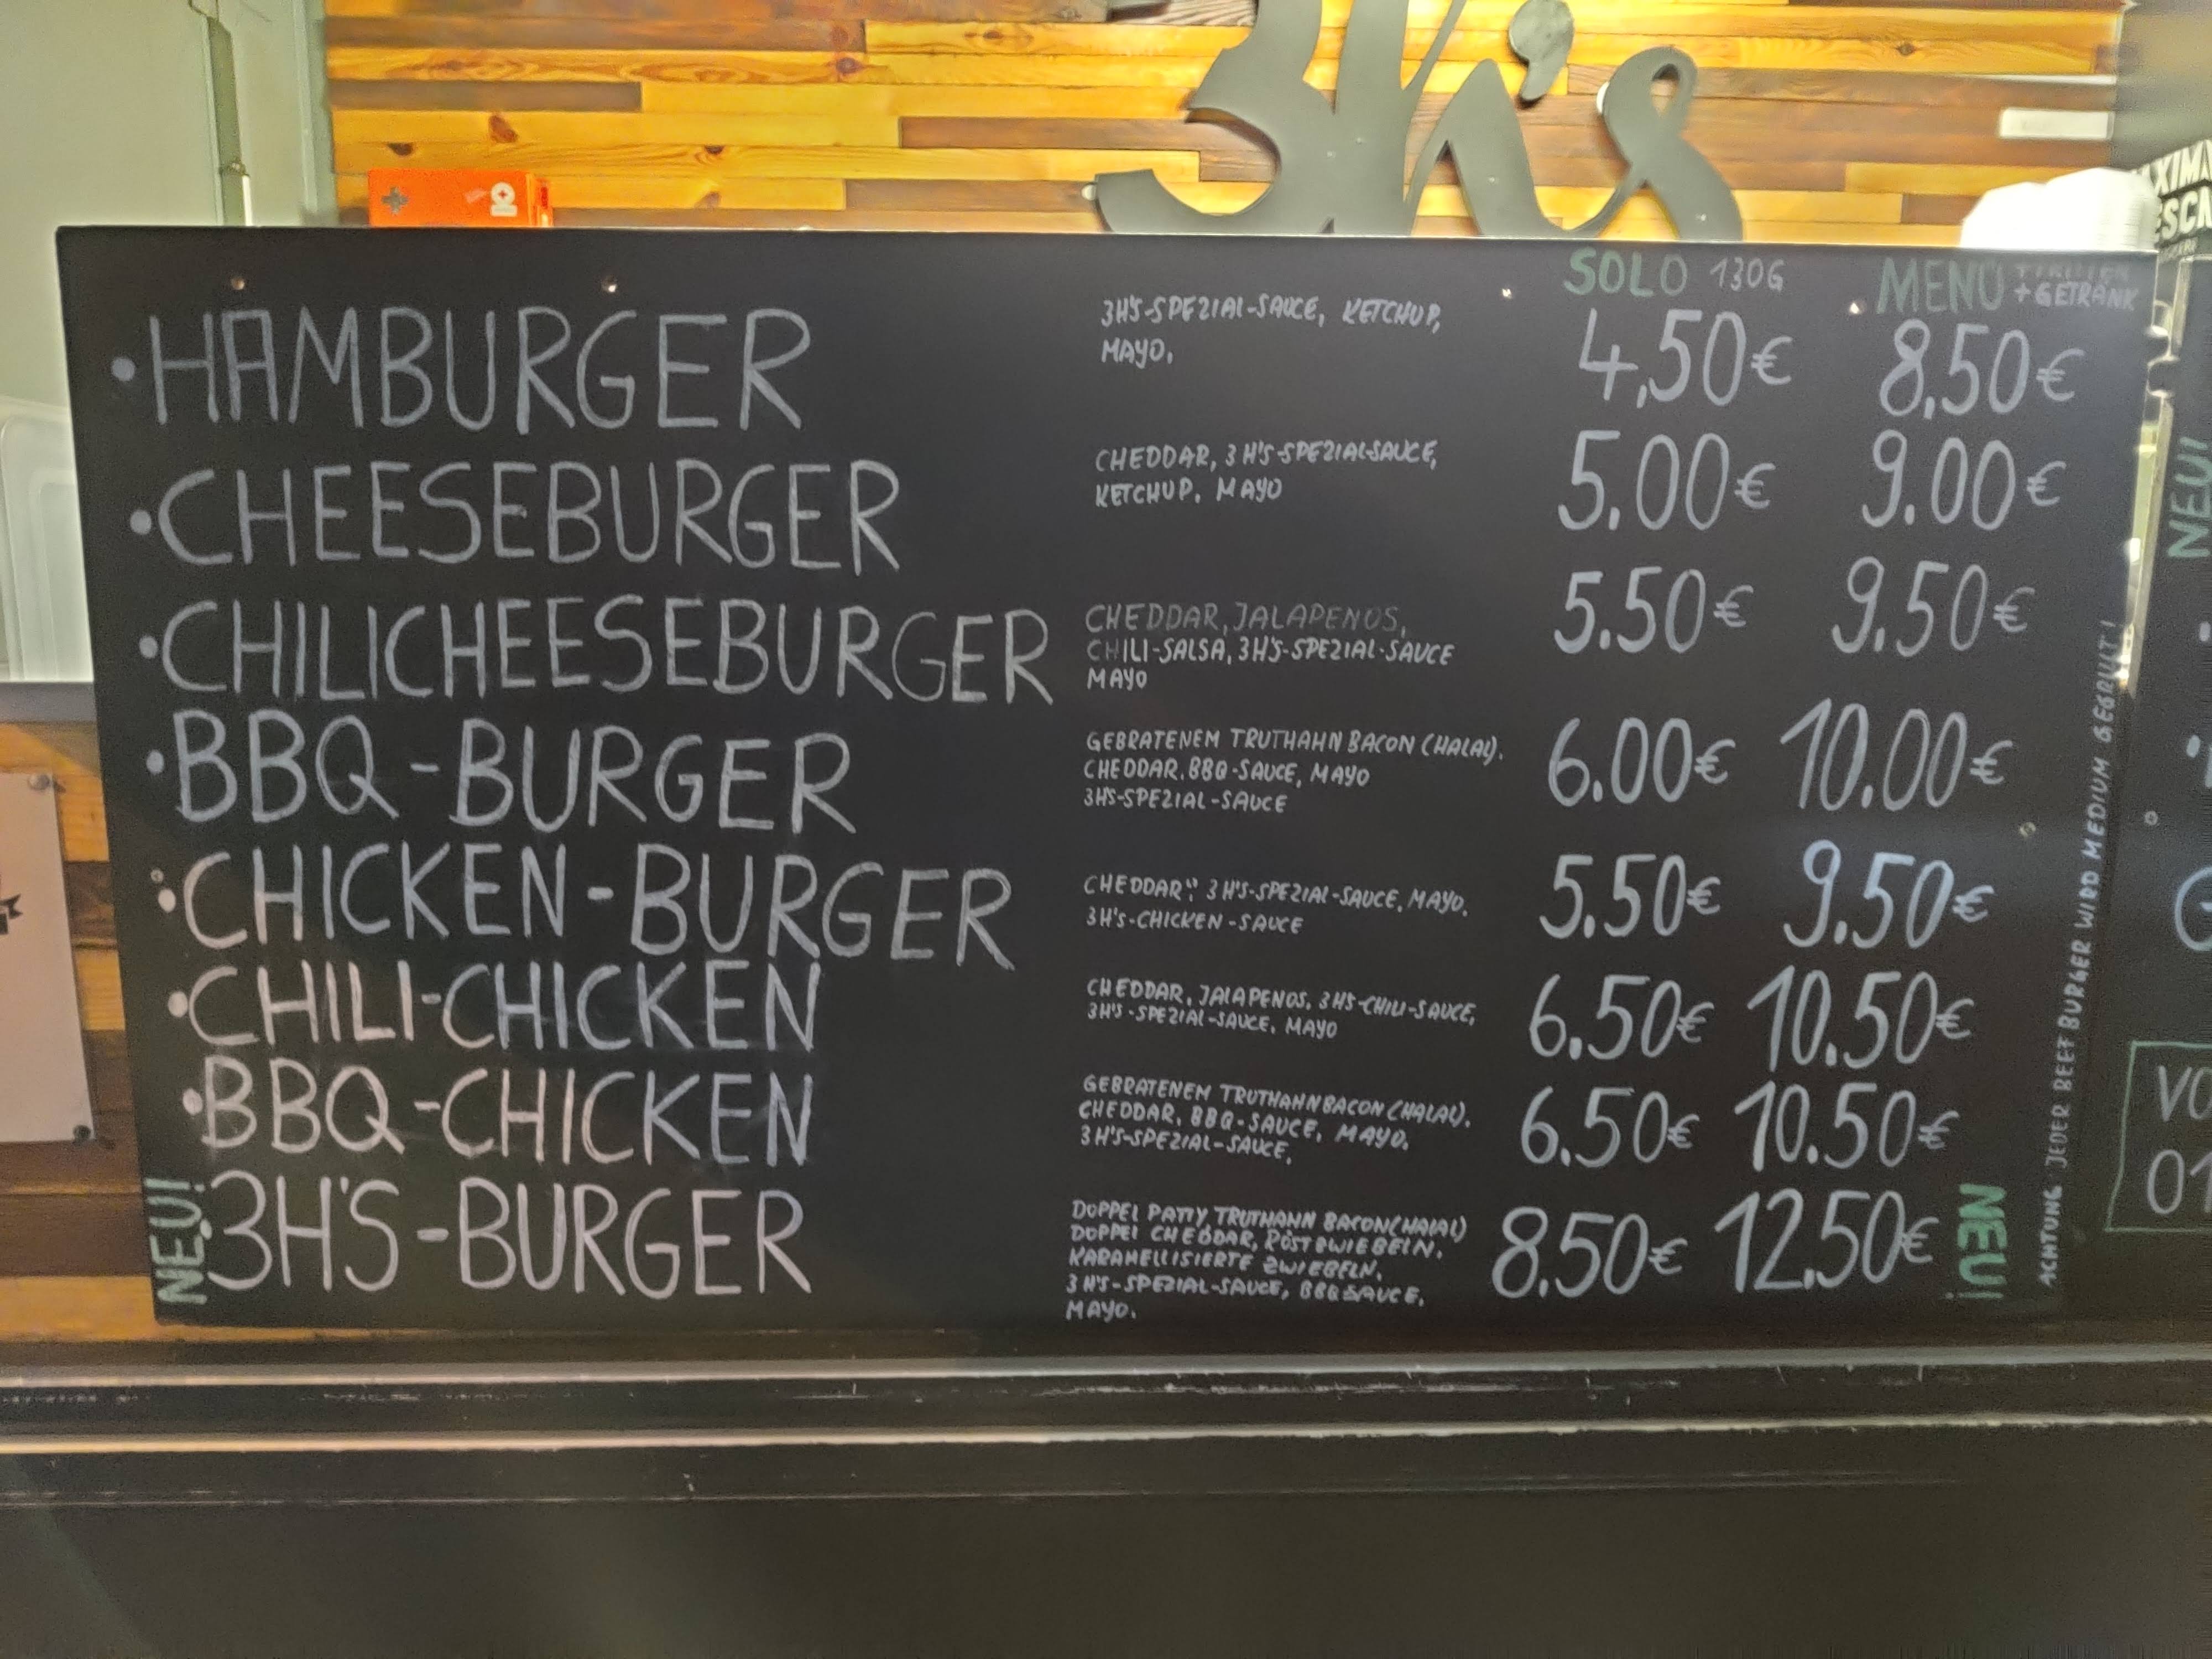 3h's
SOLO 130G MENÜ + FRITTEN
+ GETRÄNK
• HAMBURGER 3H'S-SPEZIAL-SAUCE, KETCHUP, 4,50€ 8,50€
MAYO,
• CHEESEBURGER CHEDDAR, 3H'S-SPEZIALSAUCE, 5.00€ 9.00€
KETCHUP. MAYO
• CHILICHEESEBURGER CHEDDAR, JALAPENOS, 5.50€ 9.50€
CHILI-SALSA, 3H'S-SPEZIAL-SAUCE
MAYO
• BBQ-BURGER GEBRATENEM TRUTHAHN BACON (HALAL). 6.00€ 10.00€
CHEDDAR. BBQ-SAUCE, MAYO
3HS-SPEZIAL-SAUCE
• CHICKEN-BURGER CHEDDAR, 3H'S-SPEZIAL-SAUCE, MAYO. 5.50€ 9.50€
3H'S-CHICKEN-SAUCE
• CHILI-CHICKEN CHEDDAR, JALAPENOS, 3HS-CHILI-SAUCE, 6.50€ 10.50€
3H'S-SPEZIAL-SAUCE, MAYO
• BBQ-CHICKEN GEBRATENEM TRUTHAHNBACON (HALAL). 6.50€ 10.50€
CHEDDAR, BBQ-SAUCE, MAYO.
3H'S-SPEZIAL-SAUCE,
NEU! • 3H'S-BURGER DOPPEL PATTY TRUTHAHN BACON (HALAL) 8.50€ 12.50€ NEU!
DOPPEL CHEDDAR, RÖSTZWIEBELN.
KARAMELLISIERTE ZWIEBELN.
3H'S-SPEZIAL-SAUCE, BBQSAUCE,
MAYO.
ACHTUNG JEDER BEEF BURGER WIRD MEDIUM GEGRILLT!
NEU!